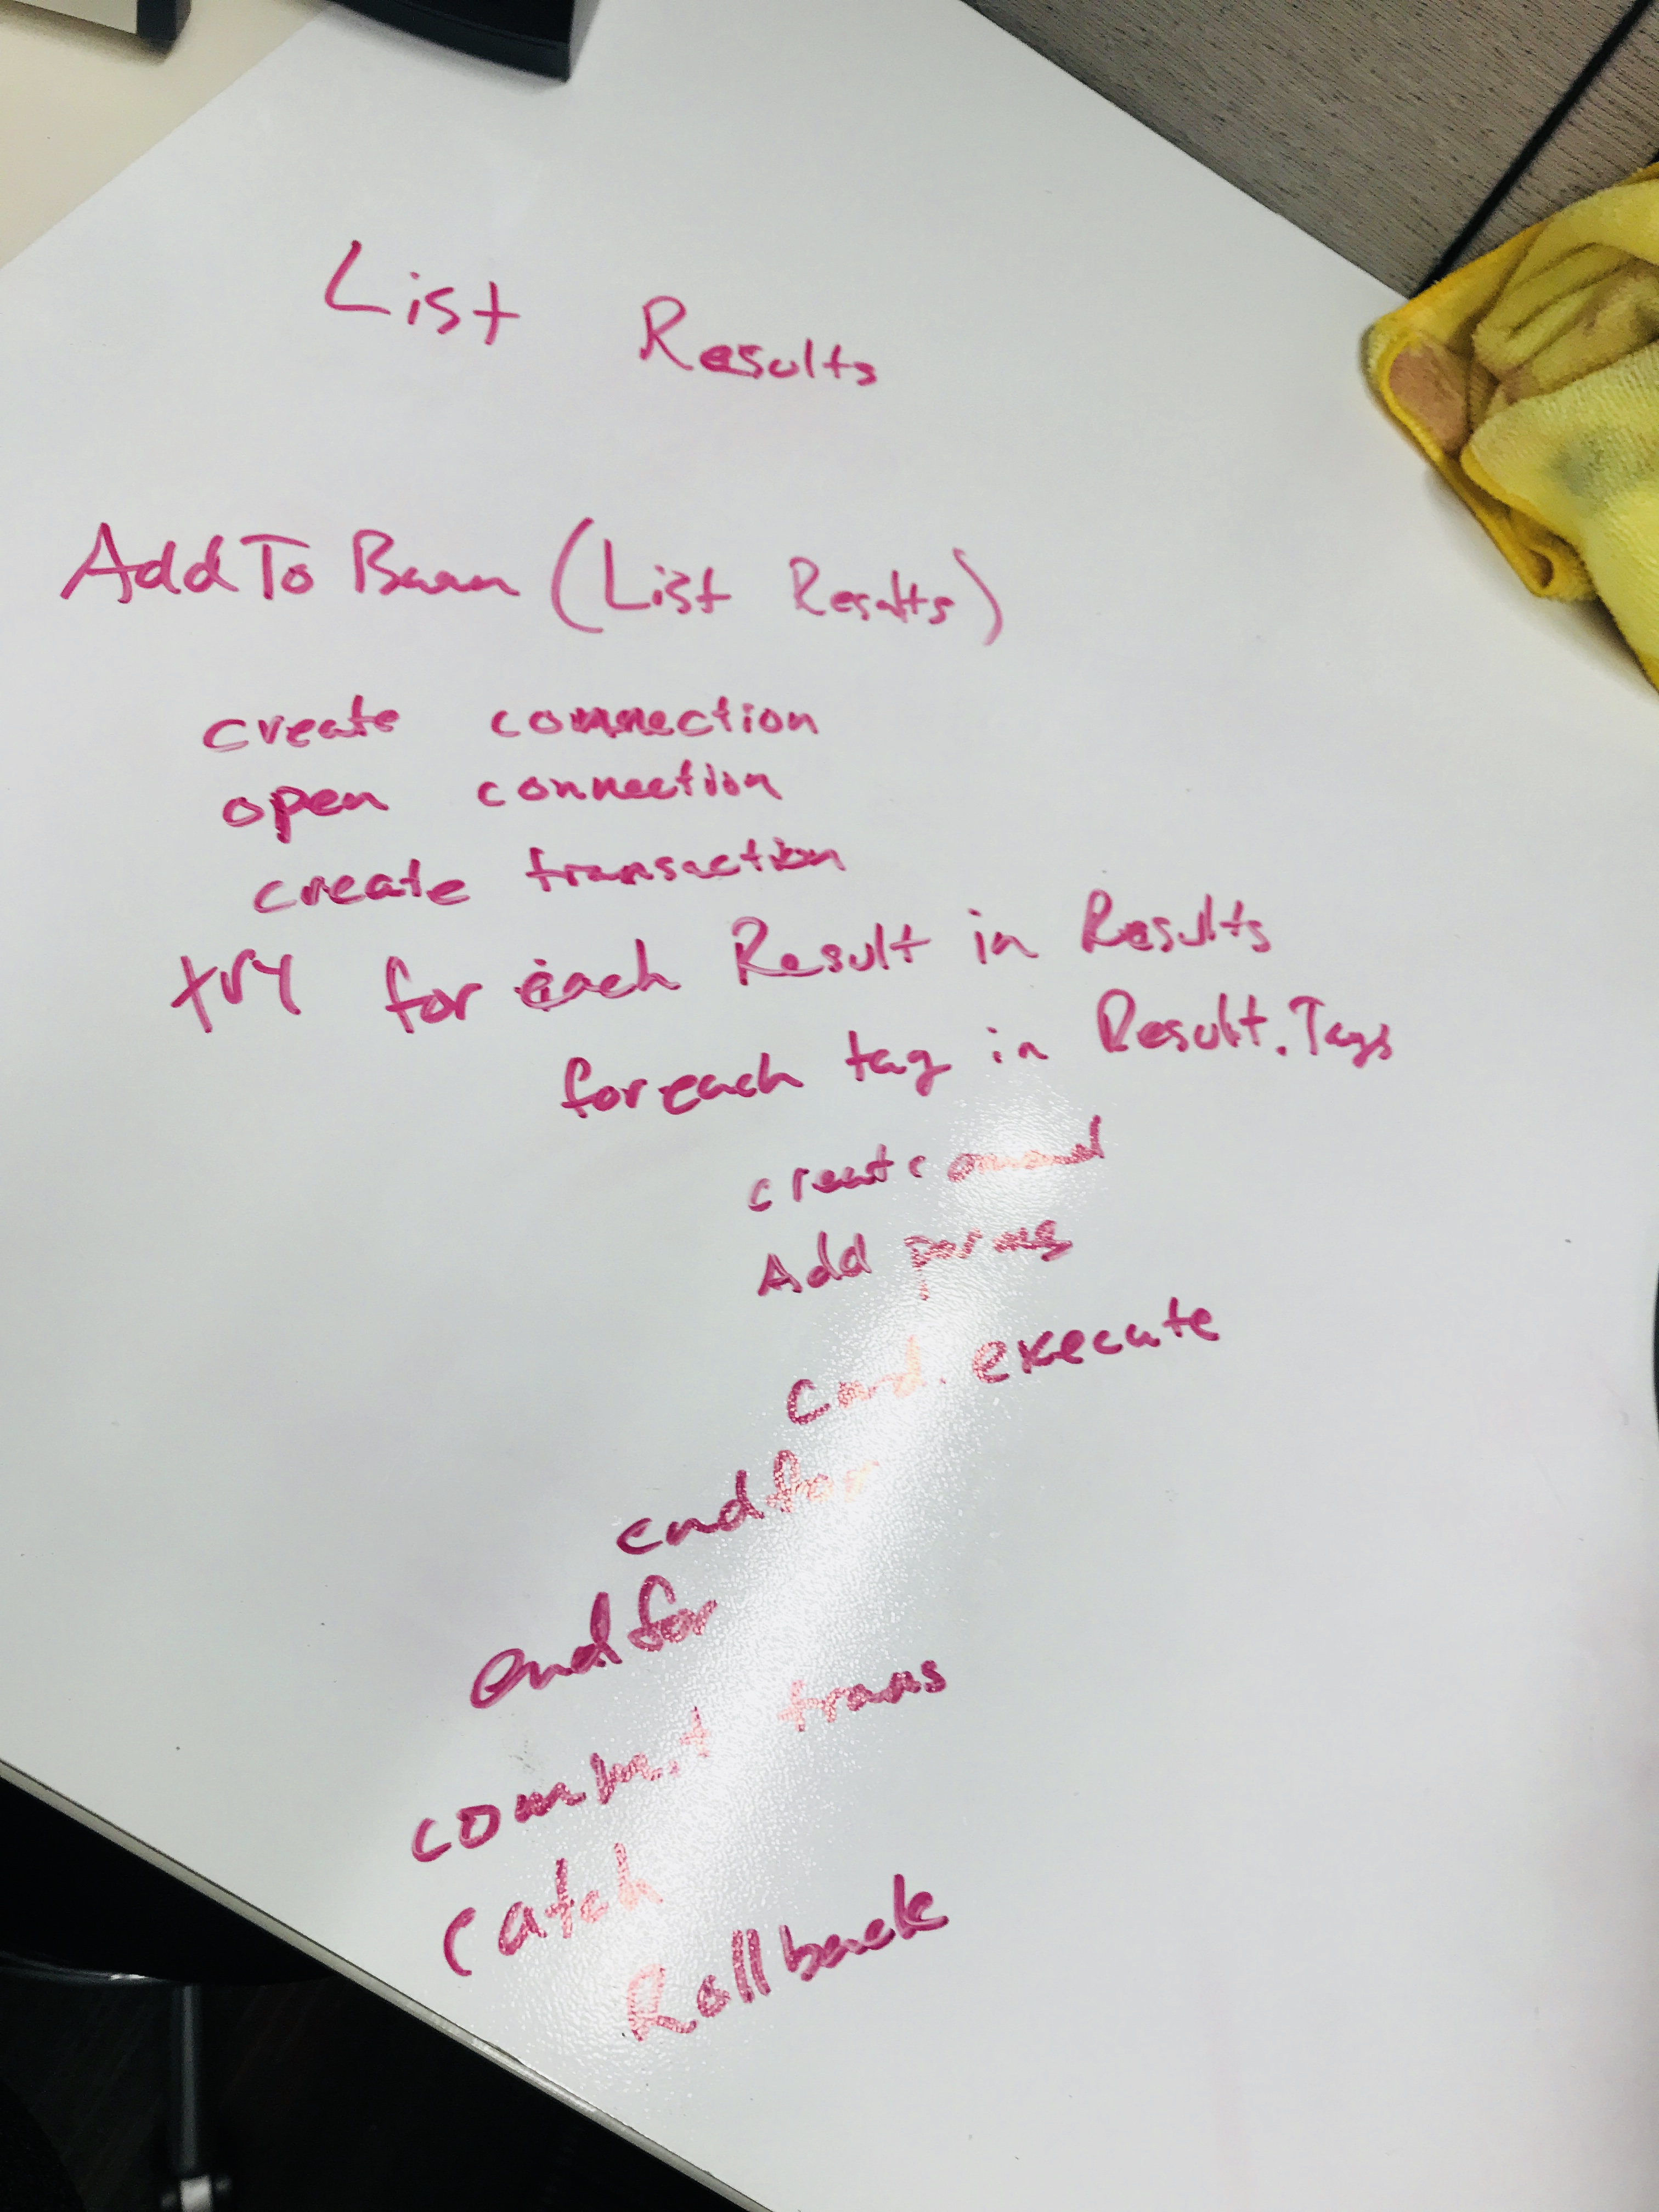 List Results
AddTo (List Results)
create connection
open connection
create transaction
try for each Result in Results
foreach tag in Result.Tags
create
Add
cmd.execute
endfor
endfor
commit trans
catch
Rollback